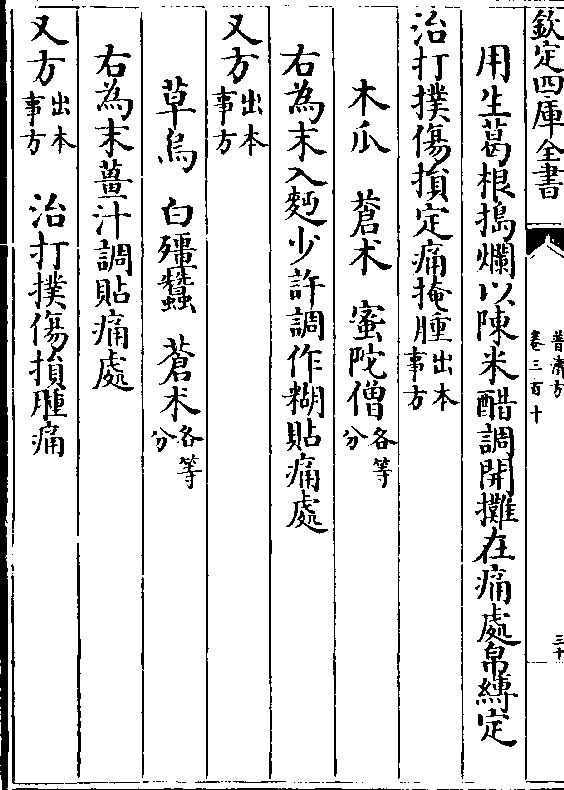 欽定四庫全書
普濟方
卷三百十
三十
用生葛根搗爛以陳米醋調開攤在痛處帛縛定
治打撲傷損定痛掩腫出本事方
木瓜　蒼术　蜜陀僧各等分
右為末入麪少許調作糊貼痛處
又方出本事方
草烏　白殭蠶　蒼术各等分
右為末薑汁調貼痛處
又方出本事方　治打撲傷損腫痛